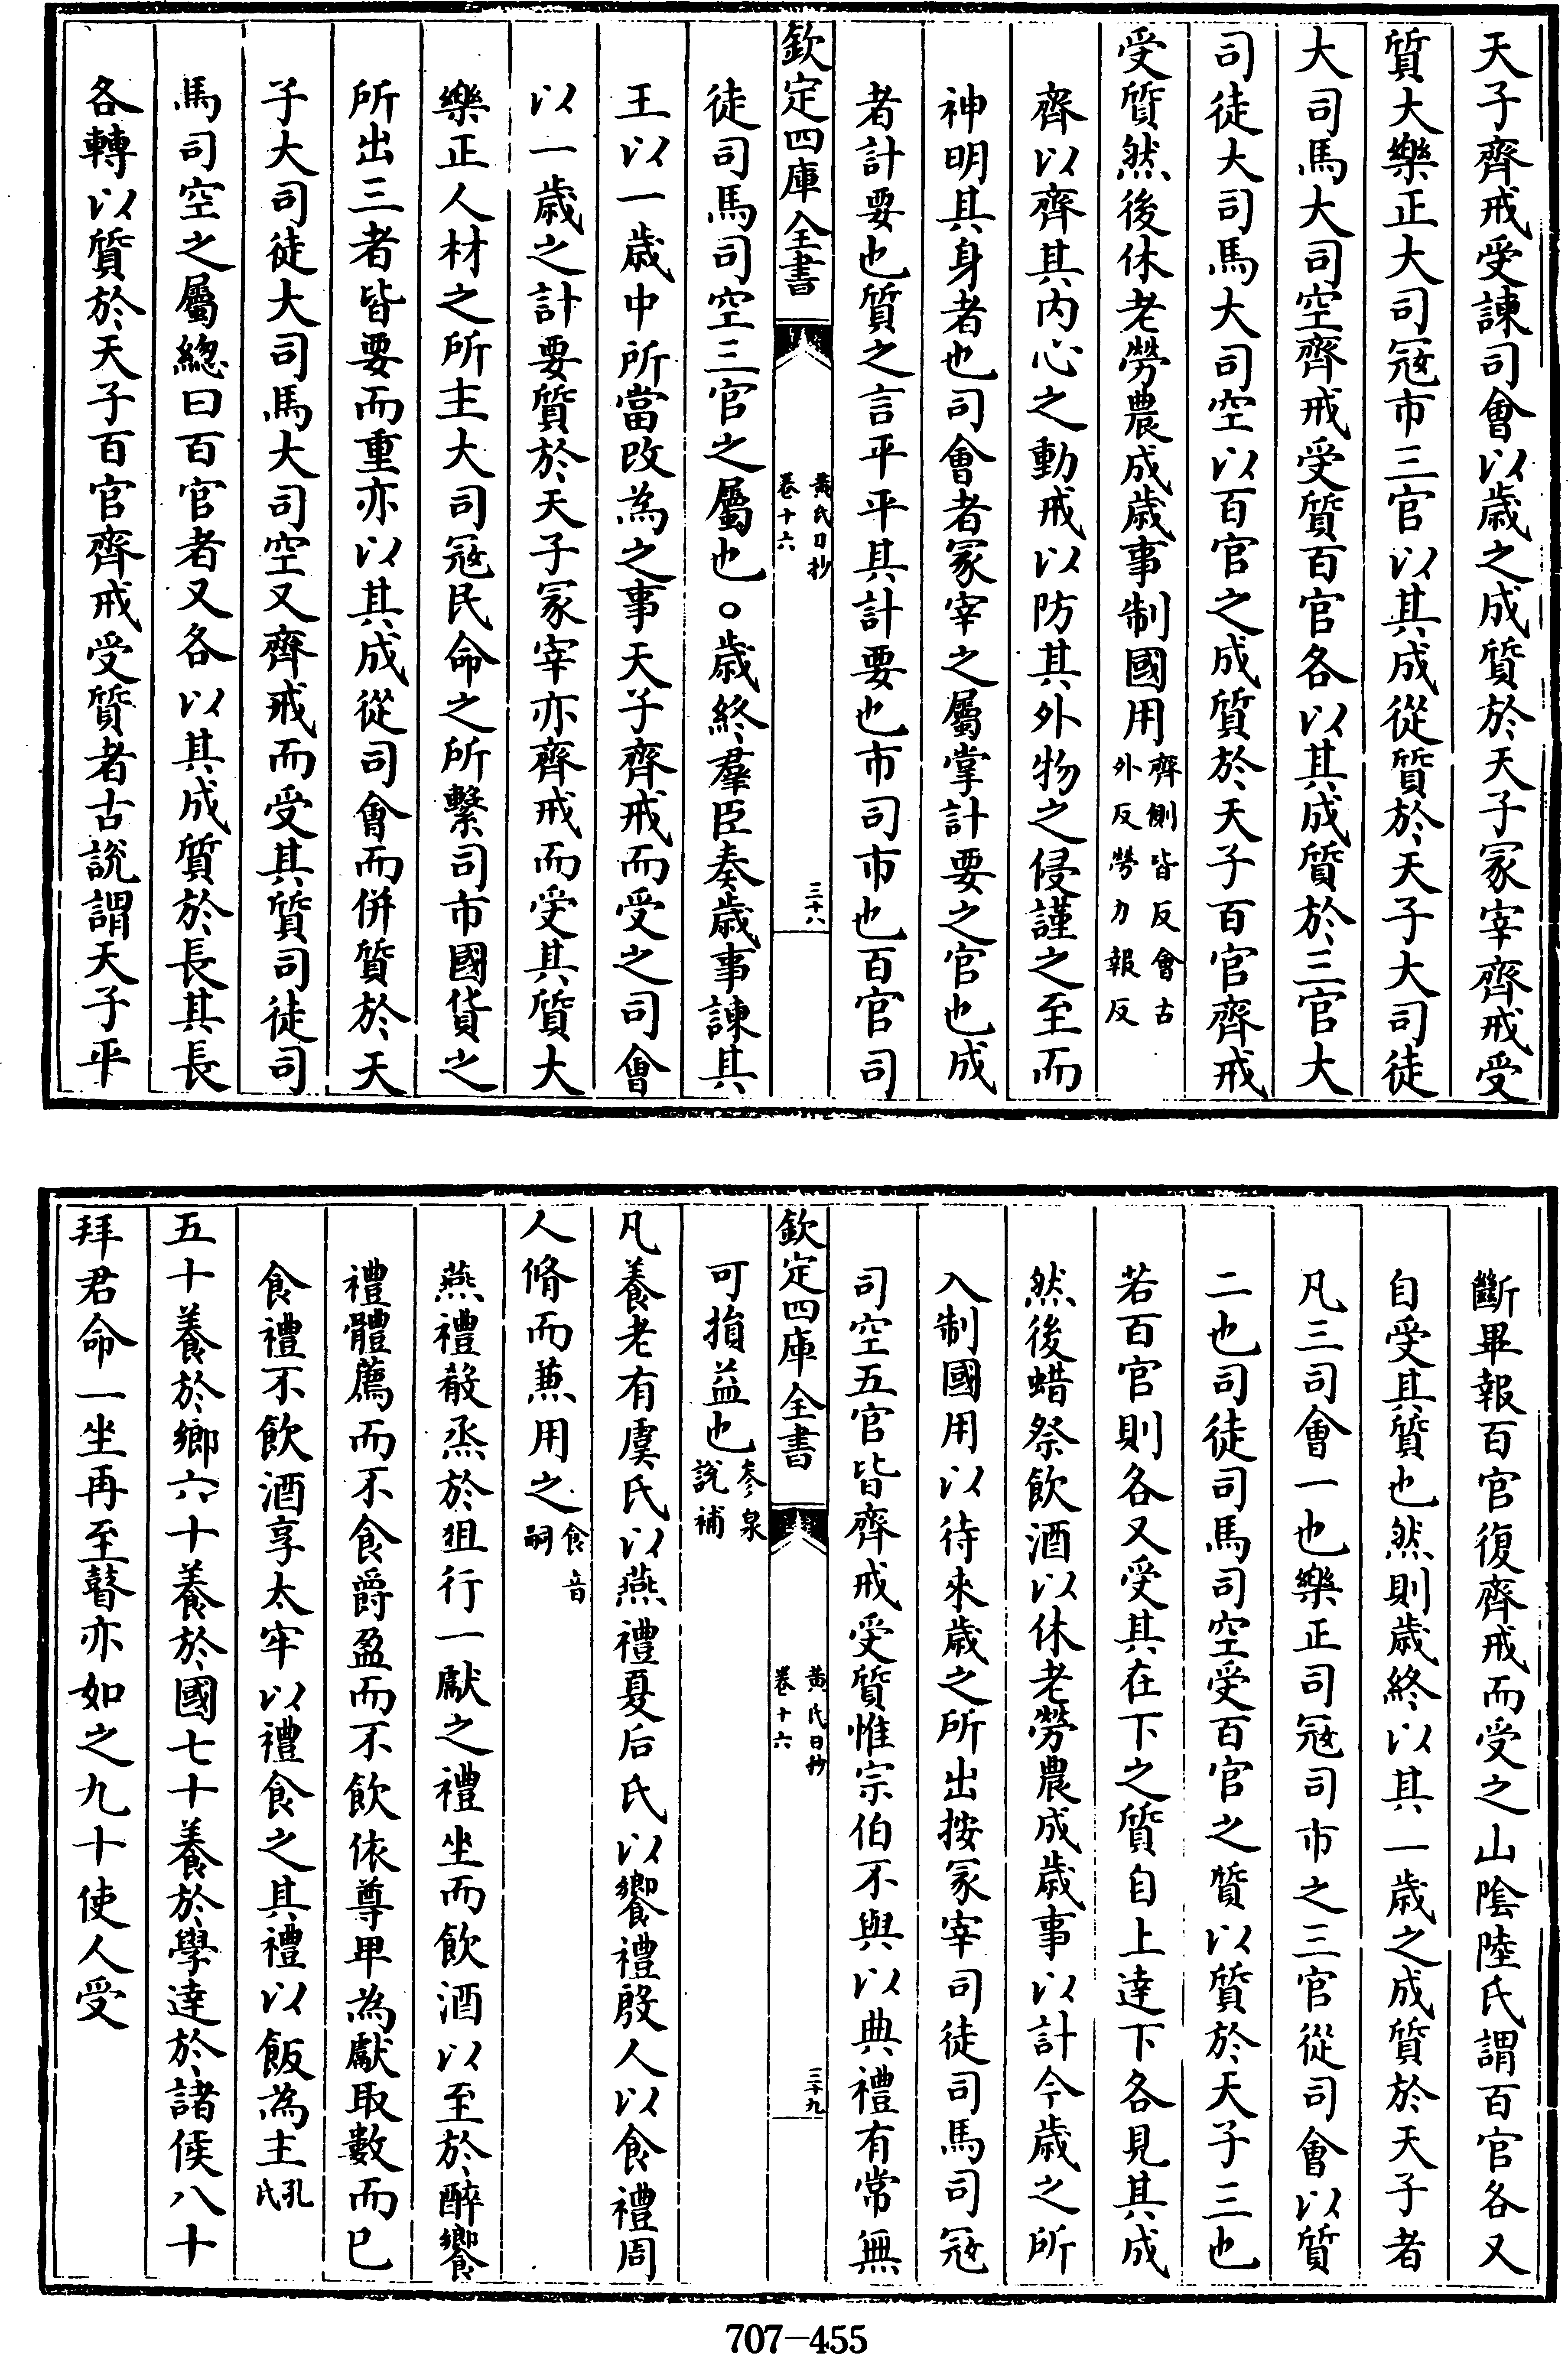 天子齊戒受諫司會以歲之成質於天子冢宰齊戒受
質大樂正大司宼市三官以其成從質於天子大司徒
大司馬大司空齊戒受質百官各以其成質於三官大
司徒大司馬大司空以百官之成質於天子百官齊戒
受質然後休老勞農成歲事制國用齊側皆反會古
外反勞力報反
齊以齊其内心之動戒以防其外物之侵謹之至而
神明其身者也司會者冢宰之屬掌計要之官也成
者計要也質之言平平其計要也市司市也百官司
欽定四庫全書
黃氏日抄
卷十六
三十八
徒司馬司空三官之屬也○歲終羣臣奏歲事諫其
王以一歲中所當改為之事天子齊戒而受之司會
以一歲之計要質於天子冢宰亦齊戒而受其質大
樂正人材之所主大司宼民命之所繫司市國貨之
所出三者皆要而重亦以其成從司會而併質於天
子大司徒大司馬大司空又齊戒而受其質司徒司
馬司空之屬總曰百官者又各以其成質於長其長
各轉以質於天子百官齊戒受質者古説謂天子平
斷畢報百官復齊戒而受之山隂陸氏謂百官各又
自受其質也然則歲終以其一歲之成質於天子者
凡三司會一也樂正司宼司市之三官從司會以質
二也司徒司馬司空受百官之質以質於天子三也
若百官則各又受其在下之質自上達下各見其成
然後蜡祭飲酒以休老勞農成歲事以計今歲之所
入制國用以待來歲之所出按冢宰司徒司馬司宼
司空五官皆齊戒受質惟宗伯不與以典禮有常無
欽定四庫全書
黃氏日抄
卷十六
三十九
可損益也參泉
説補
凡養老有虞氏以燕禮夏后氏以饗禮殷人以食禮周
人脩而兼用之食音
嗣
燕禮殽烝於俎行一獻之禮坐而飲酒以至於醉饗
禮體薦而不食爵盈而不飲依尊卑為獻取數而已
食禮不飲酒享太牢以禮食之其禮以飯為主孔
氏
五十養於鄉六十養於國七十養於學達於諸侯八十
拜君命一坐再至瞽亦如之九十使人受
707-455